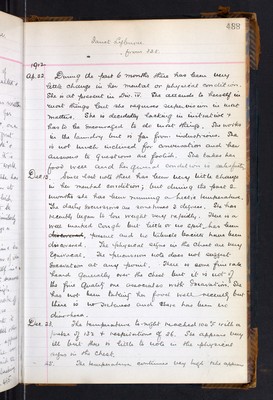 483
Janet Lightman.
from 222.
1912.
Ap. 22. During the past 6 months there has been very
little change in her mental or physical condition.
She is at present in Div. IV. She attends to herself in
most things but she requires supervision in most
matters. She is decidedly lacking in initiative &
has to be encouraged to do most things. She works
in the laundry but is far from industrious. She
is not much inclined for conversation and her
answers to questions are foolish. She takes her
food well and her general condition is satisfactory.
Dec. 15. Since last note there has been very little change
in her mental condition; but during the past 2
months she has been running a hectic temperature.
The daily excursions are sometimes 3 degrees. She has
recently begun to lose weight very rapidly. There is a
well marked cough but little or no spit has been
present and no tubercle bacilli have been
discovered. The physical signs in the chest are very
equivocal. The percussion note does not suggest
excavation at any point. There is some fine rale
heard generally over the chest but it is not of
the fine quality one associates with excavation. She
has not been taking her food well recently but
there is no sickness and there has been no
diarrhoea.
Dec. 21. The temperature to-night reached 105°F with a
pulse of 152 & respirations of 36. She appears very
ill but there is little to note in the physical
signs in the chest.
25. The temperature continues very high. She appears